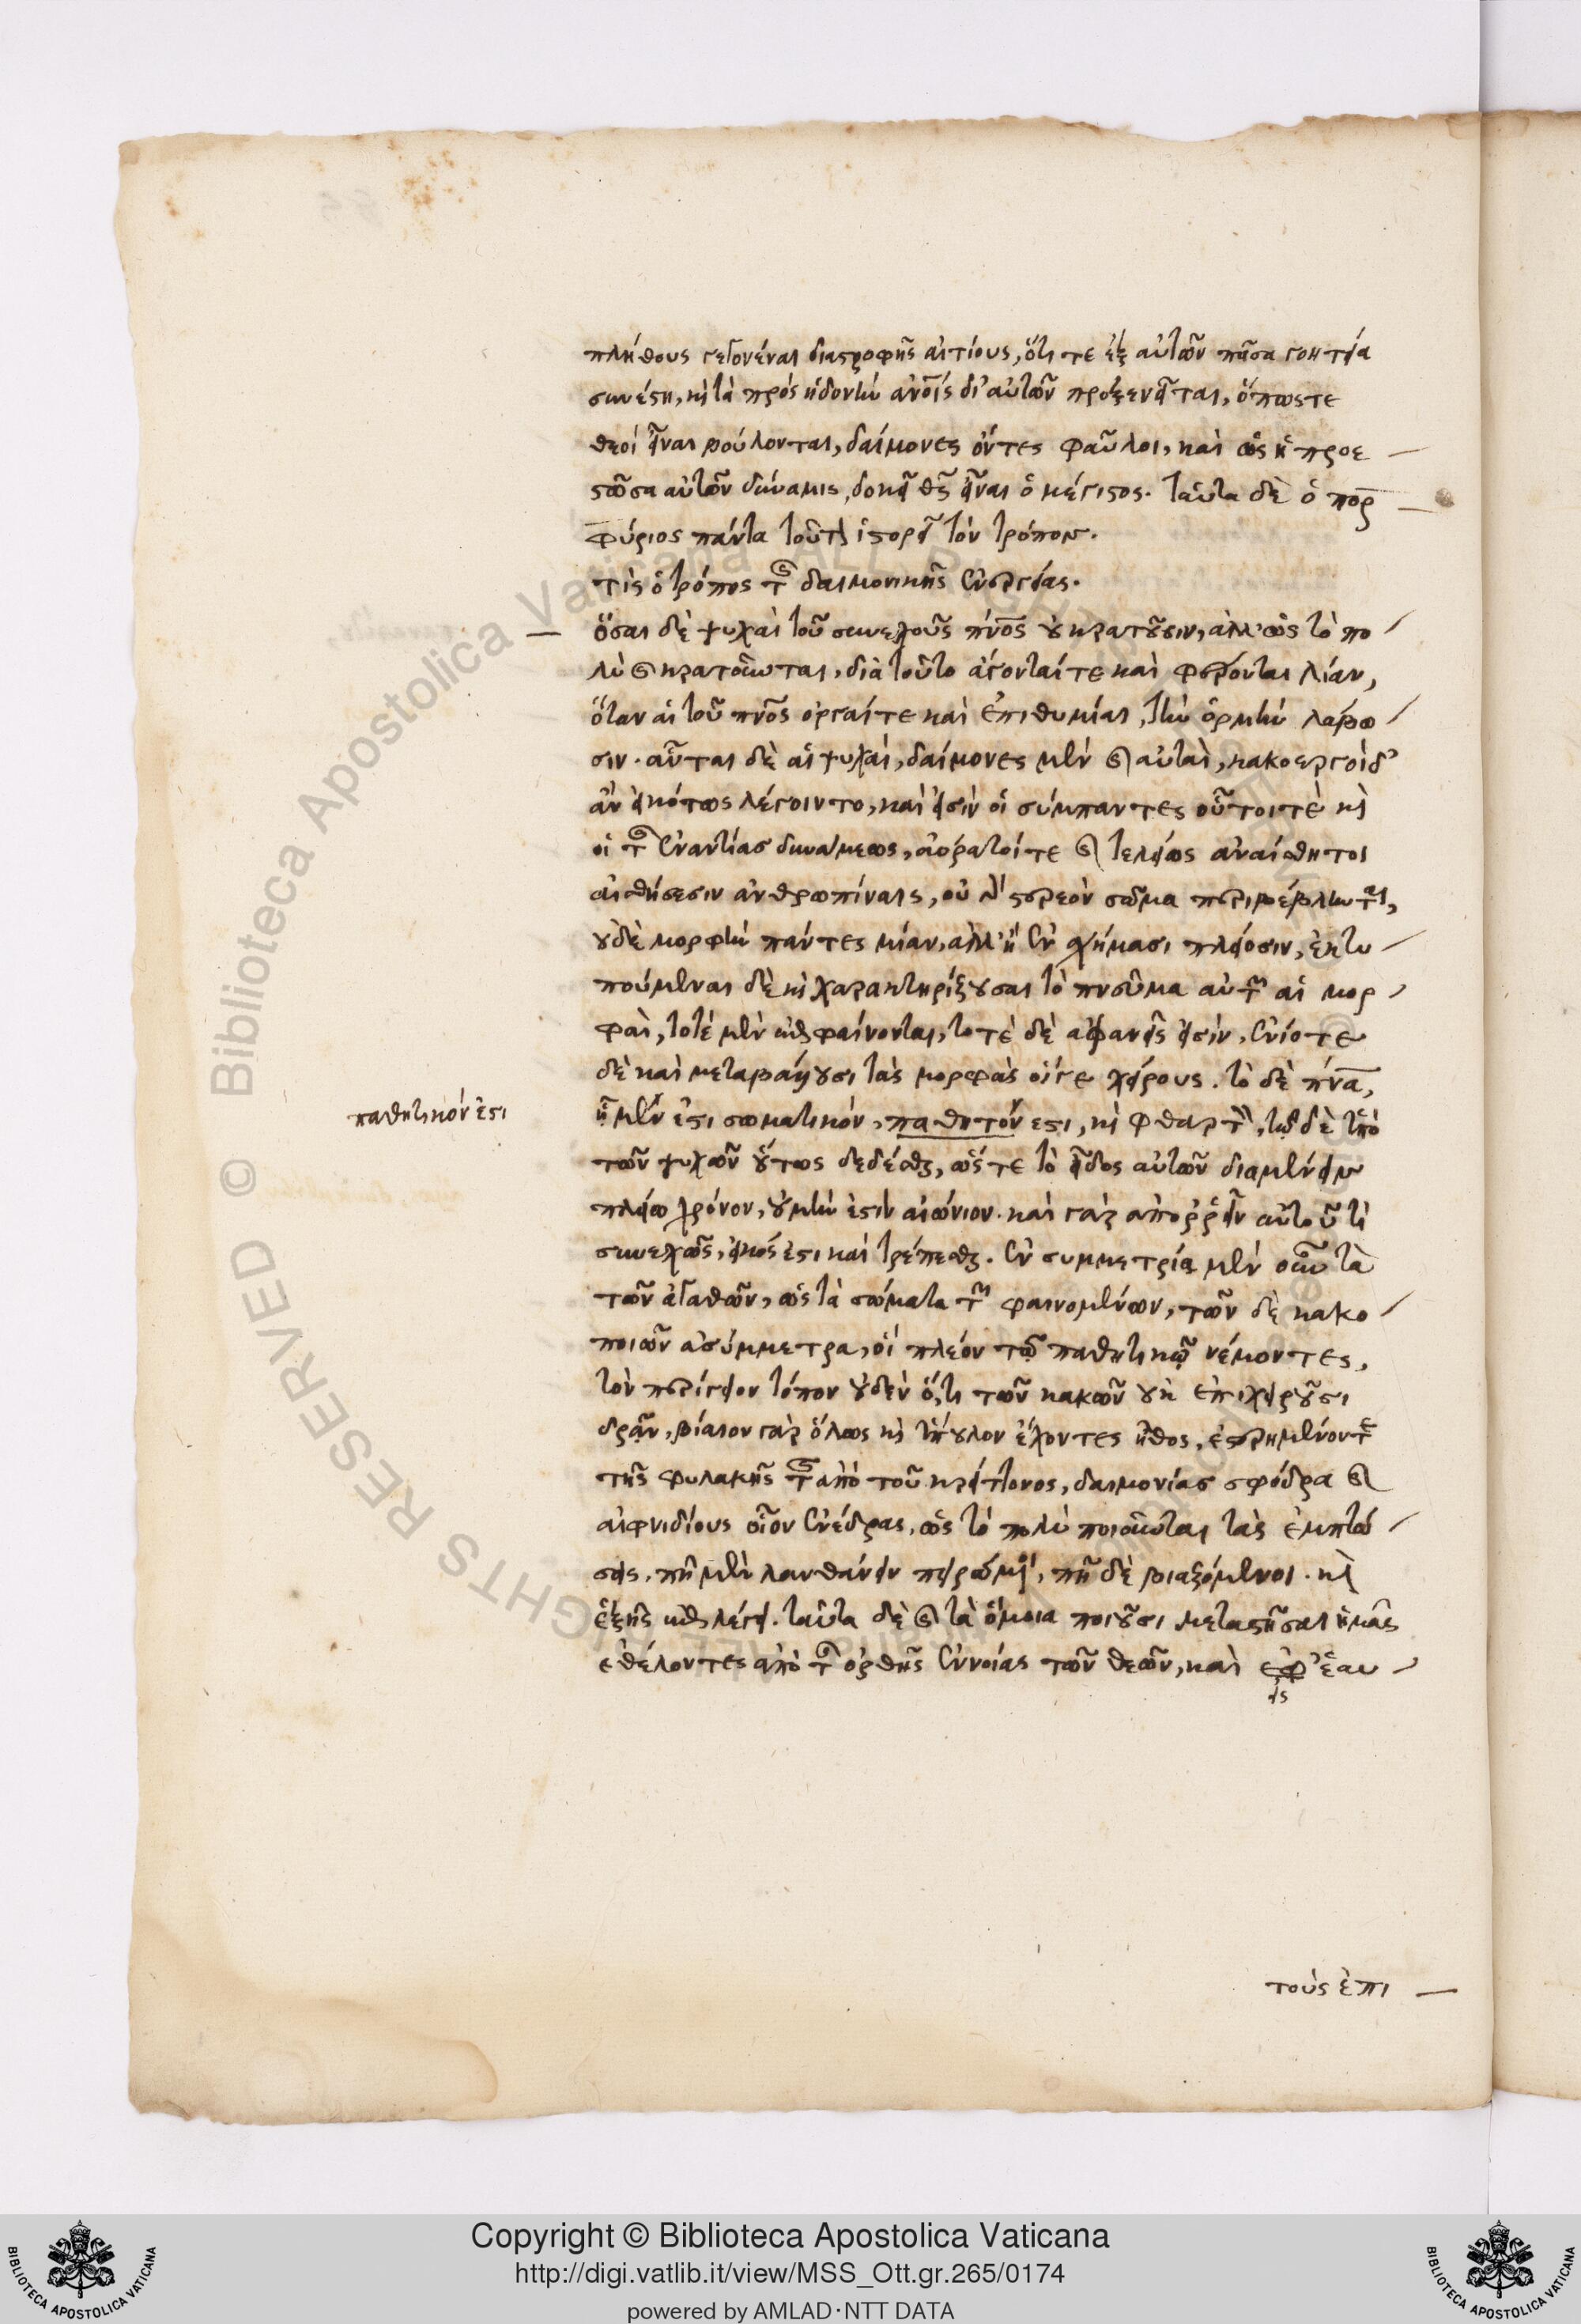 πλήθους γεγονέναι διαστροφῆς αἰτίους, ὅτι τε ἐξ αὐτῶν πᾶσα γοητεία
συνέστη, καὶ τὰ πρὸς ἡδονὴν ἀνοις δι' αὐτῶν προξενεῖται, ὅπως τε
θεοὶ εἶναι βούλονται, δαίμονες ὄντες φαῦλοι, καὶ ὡς ἡ προε
στῶσα αὐτῶν δύναμις, δοκεῖ θς εἶναι ὁ μέγιστος. ταῦτα δὲ ὁ πορ
φύριος πάντα τοῦτον ἱστορεῖ τὸν τρόπον.
τίς ὁ τρόπος τῆς δαιμονικῆς ἐνεργείας.
ὅσαι δὲ ψυχαὶ τοῦ συνεχοῦς πνος οὐ κρατοῦσιν, ἀλλ' ὡς τὸ πο
λὺ καὶ κρατοῦνται, διὰ τοῦτο ἄγονταί τε καὶ φέρονται λίαν,
ὅταν αἱ τοῦ πνος ὀργαί τε καὶ ἐπιθυμίαι, τὴν ὁρμὴν λάβω
σιν. αὗται δὲ αἱ ψυχαὶ, δαίμονες μὲν καὶ αὐταὶ, κακοεργοὶ δ'
ἂν εἰκότως λέγοιντο, καὶ εἰσὶν οἱ σύμπαντες οὗτοι τὲ καὶ
οἱ τῆς ἐναντίας δυνάμεως, ἀόρατοί τε καὶ τελείως ἀναίσθητοι
αἰσθήσεσιν ἀνθρωπίναις, οὐ γὰρ στερεὸν σῶμα περιβέβληνται,
οὐδὲ μορφὴν πάντες μίαν, ἀλλ' ἐν σχήμασι πλείοσιν, ἐκτυ
πούμεναι δὲ καὶ χαρακτηρίζουσαι τὸ πνεῦμα αὐτῶν αἱ μορ
φαὶ, τοτὲ μὲν ἐπιφαίνονται, τοτὲ δὲ ἀφανεῖς εἰσίν, ἐνίοτε
δὲ καὶ μεταβάλλουσι τὰς μορφὰς οἵ γε χείρους. τὸ δὲ πνα,
ᾗ μέν ἐστι σωματικόν, παθητόν ἐστι, καὶ φθαρτὸν, τῷ δὲ ὑπὸ
τῶν ψυχῶν οὕτως δεδέσθαι, ὥστε τὸ εἶδος αὐτῶν διαμένειν
πλείω χρόνον, οὐ μήν ἐστιν αἰώνιον. καὶ γὰρ ἀπορρεῖν αὐτοῦ τὶ
συνεχῶς, εἰκός ἐστι καὶ τρέπεσθαι. ἐν συμμετρίᾳ μὲν οὖν τὰ
τῶν ἀγαθῶν, ὡς τὰ σώματα τῶν φαινομένων, τῶν δὲ κακο
ποιῶν ἀσύμμετρα, οἳ πλέον τῷ παθητικῷ νέμοντες,
τὸν περίγειον τόπον οὐδὲν ὅ, τι τῶν κακῶν οὐκ ἐπιχειροῦσι
δρᾶν, βίαιον γὰρ ὅλως καὶ ὕπουλον ἔχοντες ἦθος, ἐστερημένον τε
τῆς φυλακῆς τῆς ἀπὸ τοῦ κρείττονος, δαιμονίας σφόδρα καὶ
αἰφνιδίους οἷον ἐνέδρας, ὡς τὸ πολὺ ποιοῦνται τὰς ἐμπτώ
σεις, πῆ μὲν λανθάνειν πειρώμενοι, πῆ δὲ βιαζόμενοι. καὶ
ἑξῆς ἐπιλέγει. ταῦτα δὲ καὶ τὰ ὅμοια ποιοῦσι μεταστῆσαι ἡμᾶς
ἐθέλοντες ἀπὸ τῆς ὀρθῆς ἐννοίας τῶν θεῶν, καὶ ἐφ' ἑαυ
εἰς
παθητικόν ἐστι
τοὺς ἐπι
Copyright © Biblioteca Apostolica Vaticana
http://digi.vatlib.it/view/MSS_Ott.gr.265/0174
powered by AMLAD·NTT DATA
BIBLIOTECA APOSTOLICA VATICANA
BIBLIOTECA APOSTOLICA VATICANA